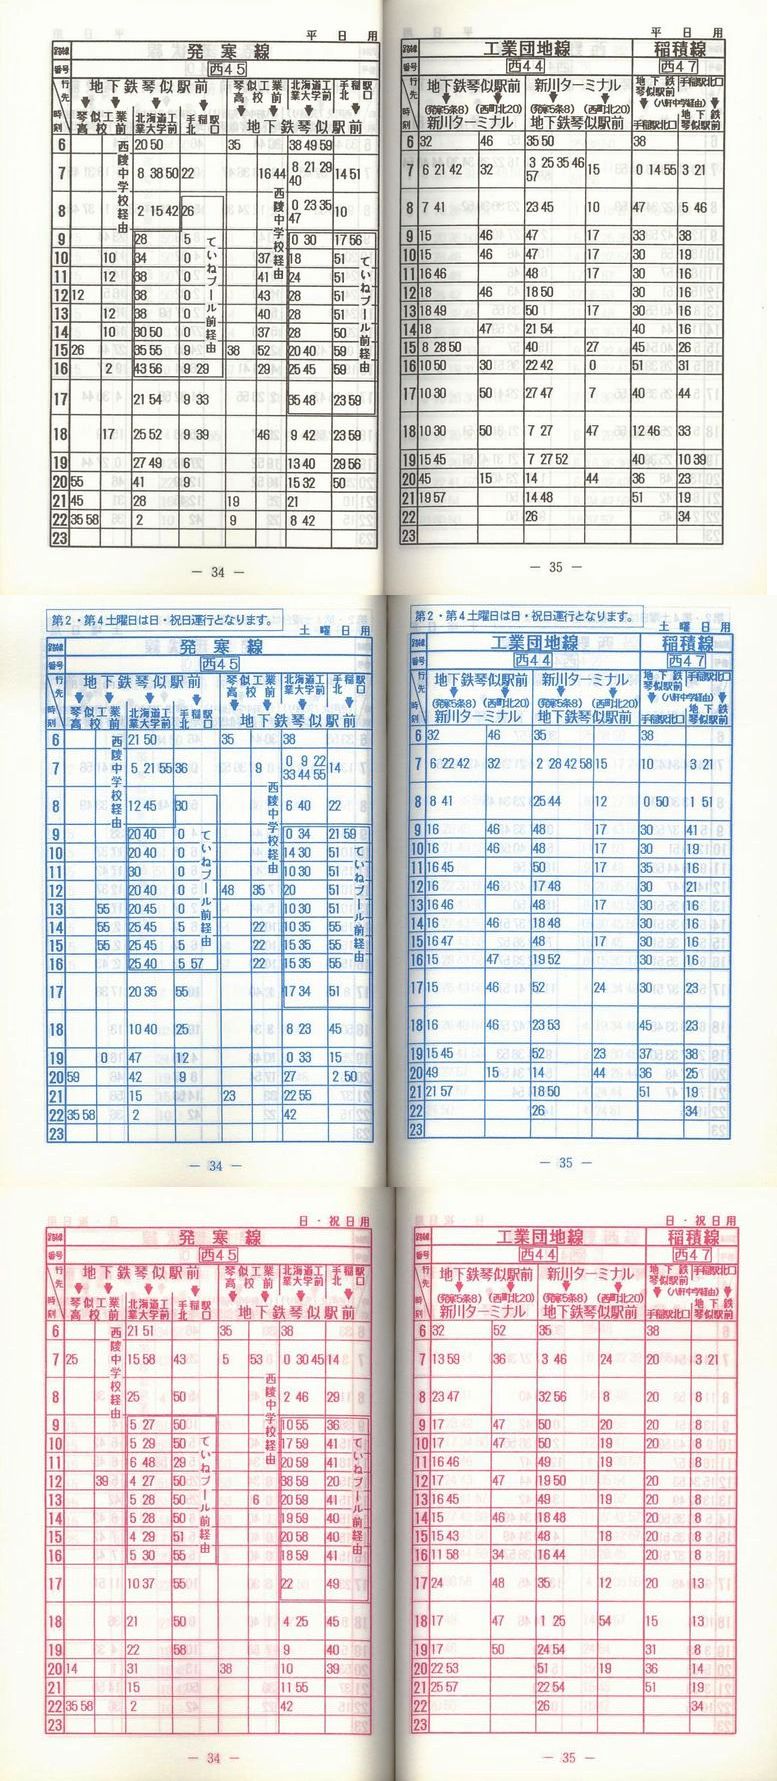 平 日 用
発 寒 線
番号 西45
行先 地下鉄琴似駅前 琴似工業高校 北海道工業大学前 手稲駅北口
時刻 琴似工業高校前 北海道工業大学前 手稲駅北口 地下鉄琴似駅前
西陵中学校経由
ていねプール前経由
西陵中学校経由
ていねプール前経由
6 20 50 35 38 49 59
7 8 38 50 22 16 44 8 21 29 40 14 51
8 2 15 42 26 0 23 35 47 10
9 28 5 0 30 17 56
10 10 34 0 37 18 51
11 12 38 0 41 24 51
12 12 38 0 43 28 51
13 12 38 0 40 28 51
14 10 30 50 0 37 28 50
15 26 35 55 9 38 52 20 40 59
16 2 43 56 9 29 29 25 45 59
17 21 54 9 33 35 48 23 59
18 17 25 52 9 39 46 9 42 23 59
19 27 49 6 13 40 29 56
20 55 41 9 15 32 50
21 45 28 19 21
22 35 58 2 9 8 42
23
－ 34 －
平 日 用
工業団地線 稲積線
西44 西47
地下鉄琴似駅前 新川ターミナル 地下鉄琴似駅前 手稲駅北口
(発寒5条8) (西町北20) (発寒5条8) (西町北20) (八軒中学経由)
新川ターミナル 地下鉄琴似駅前 手稲駅北口 地下鉄琴似駅前
6 32 46 35 50 38
7 6 21 42 32 3 25 35 46 57 15 0 14 55 3 21
8 7 41 23 45 10 47 5 46
9 15 46 47 17 33 38
10 15 46 47 17 30 19
11 16 46 48 17 30 16
12 18 46 18 50 30 16
13 18 49 50 17 30 16
14 18 47 21 54 40 16
15 8 28 50 40 27 45 26
16 10 50 30 22 42 0 51 31
17 10 30 50 27 47 7 40 44
18 10 30 50 7 27 47 12 46 33
19 15 45 7 27 52 40 10 39
20 45 15 14 44 36 23
21 19 57 14 48 51 19
22 26 34
23
－ 35 －
第2・第4土曜日は日・祝日運行となります。
土 曜 日 用
発 寒 線
番号 西45
行先 地下鉄琴似駅前 琴似工業高校 北海道工業大学前 手稲駅北口
時刻 琴似工業高校前 北海道工業大学前 手稲駅北口 地下鉄琴似駅前
西陵中学校経由
ていねプール前経由
西陵中学校経由
ていねプール前経由
6 21 50 35 38
7 5 21 55 36 9 0 9 22 33 44 55 14
8 12 45 30 6 40 22
9 20 40 0 0 34 21 59
10 20 40 0 14 30 51
11 30 0 10 30 51
12 20 40 0 48 35 20 51
13 55 20 45 0 10 30 51
14 55 25 45 5 22 10 35 55
15 55 25 45 5 22 15 35 55
16 25 40 5 57 22 15 35 55
17 20 35 55 17 34 51
18 10 40 25 8 23 45
19 0 47 12 0 33 15
20 59 42 9 27 2 50
21 15 23 22 55
22 35 58 2 42
23
－ 34 －
第2・第4土曜日は日・祝日運行となります。
土 曜 日 用
工業団地線 稲積線
西44 西47
地下鉄琴似駅前 新川ターミナル 地下鉄琴似駅前 手稲駅北口
(発寒5条8) (西町北20) (発寒5条8) (西町北20) (八軒中学経由)
新川ターミナル 地下鉄琴似駅前 手稲駅北口 地下鉄琴似駅前
6 32 46 35 38
7 6 22 42 32 2 28 42 58 15 10 3 21
8 8 41 25 44 12 0 50 1 51
9 16 46 48 17 30 41
10 16 46 48 17 30 19
11 16 45 50 17 35 16
12 16 46 17 48 30 21
13 16 46 48 17 30 16
14 16 46 18 48 30 16
15 16 47 48 17 30 16
16 15 47 19 52 30 16
17 15 46 52 24 30 23
18 16 46 23 53 45 23
19 15 45 52 23 37 38
20 49 15 14 44 36 25
21 21 57 18 50 51 19
22 26 34
23
－ 35 －
日・祝日用
発 寒 線
番号 西45
行先 地下鉄琴似駅前 琴似工業高校 北海道工業大学前 手稲駅北口
時刻 琴似工業高校前 北海道工業大学前 手稲駅北口 地下鉄琴似駅前
西陵中学校経由
ていねプール前経由
西陵中学校経由
ていねプール前経由
6 21 51 35 38
7 25 15 58 43 5 53 0 30 45 14
8 25 50 2 46 29
9 5 27 50 10 55 36
10 5 29 50 17 59 41
11 6 48 29 20 59 41
12 39 4 27 50 38 59 20
13 5 28 50 6 20 59 41
14 5 28 50 19 59 40
15 4 29 51 20 58 40
16 5 30 55 18 59 41
17 10 37 55 22 49
18 21 50 4 25 45
19 22 58 9 40
20 14 31 38 10 39
21 15 11 55
22 35 58 2 42
23
－ 34 －
日・祝日用
工業団地線 稲積線
西44 西47
地下鉄琴似駅前 新川ターミナル 地下鉄琴似駅前 手稲駅北口
(発寒5条8) (西町北20) (発寒5条8) (西町北20) (八軒中学経由)
新川ターミナル 地下鉄琴似駅前 手稲駅北口 地下鉄琴似駅前
6 32 52 35 38
7 13 59 36 3 46 24 20 3 21
8 23 47 32 56 8 20 8
9 17 47 50 20 20 8
10 17 47 50 19 20 8
11 16 46 49 19 20 8
12 17 47 19 50 20 8
13 16 45 49 19 20 8
14 15 46 18 48 20 8
15 15 43 48 18 20 8
16 11 58 34 16 44 20 8
17 24 48 35 12 20 13
18 17 47 1 25 54 15 13
19 17 50 24 54 31 8
20 22 53 51 19 36 14
21 25 57 22 54 51 19
22 26 34
23
－ 35 －